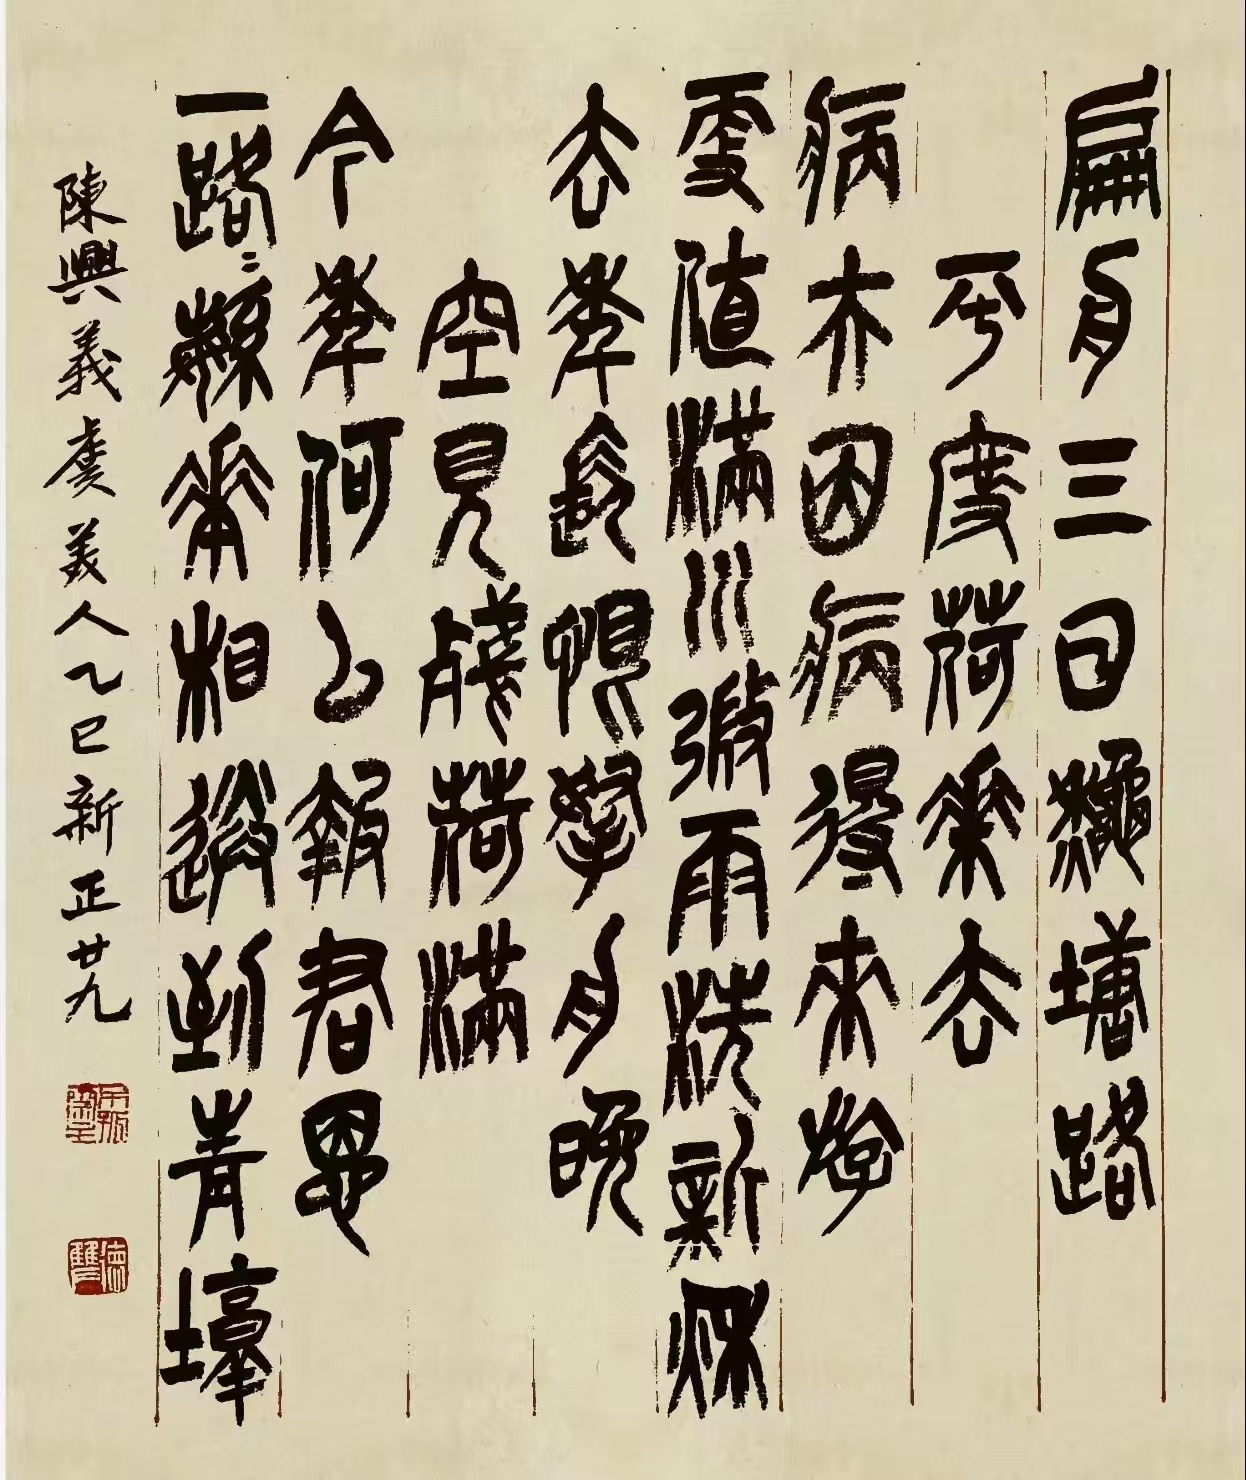 扁舟三日秋塘路
平度荷華去
病夫因病得來游
更值滿川微雨洗新秋
去年長恨拏舟晚
空見殘荷滿
今年何以報君恩
一路繁華相送到青墩
陳與義虞美人乙巳新正廿九